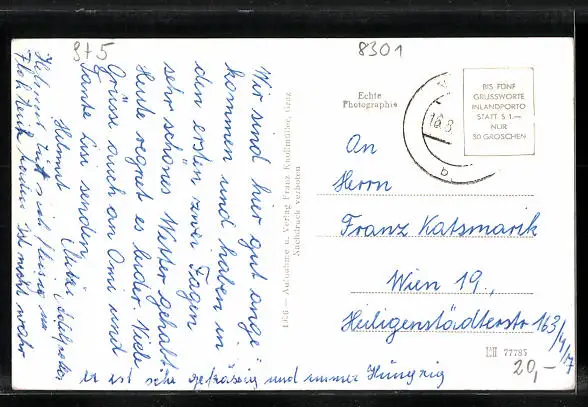 9+5
8301
Wir sind hier gut ange-
kommen und haben in
den ersten zwei Tagen
sehr schönes Wetter gehabt.
Heute regnet es leider. Viele
Grüsse auch an Omi und
Tante Lisi senden
Helmut
er ist sehr gefrässig und immer Hungrig
1426 – Aufnahme u. Verlag Franz Knollmüller, Graz
Nachdruck verboten
Echte
Photographie
16.8.
b
BIS FÜNF
GRUSSWORTE
INLANDPORTO
STATT S 1.—
NUR
30 GROSCHEN
An
Herrn
Franz Katsmarik
Wien 19.,
Heiligenstädterstr 163/4/7
77785
20,-